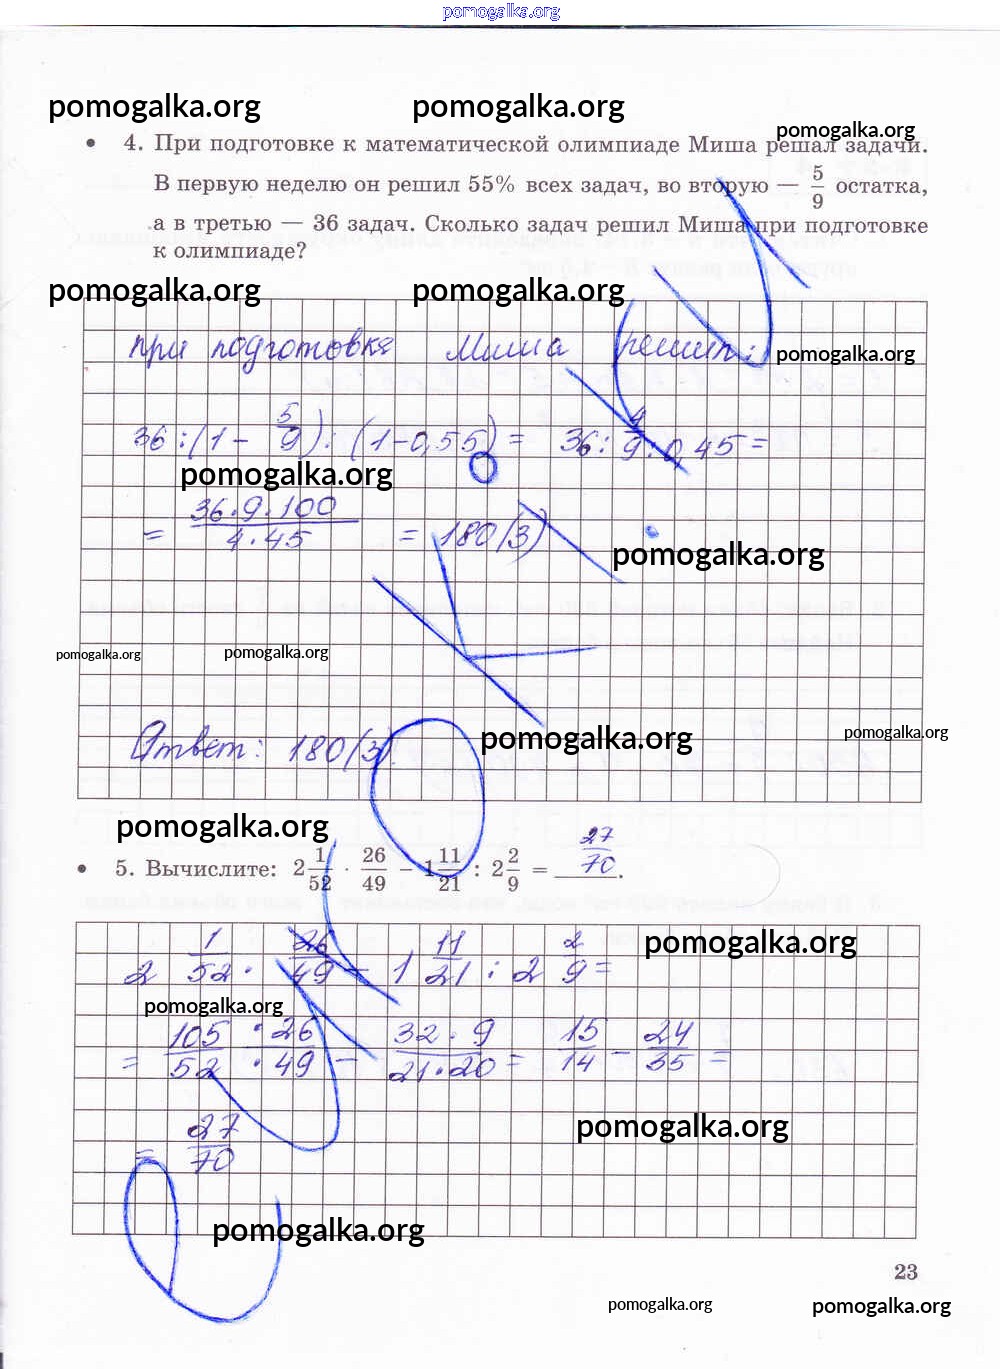 pomogalka.org
pomogalka.org pomogalka.org
pomogalka.org
• 4. При подготовке к математической олимпиаде Миша решал задачи.
В первую неделю он решил 55% всех задач, во вторую — 5/9 остатка,
а в третью — 36 задач. Сколько задач решил Миша при подготовке
к олимпиаде?
pomogalka.org pomogalka.org
pomogalka.org
При подготовке Миша решил:
pomogalka.org
36 : (1 - 5/9) : (1-0,55) = 36 : 4/9 : 0,45 =
pomogalka.org
= 36·9·100/4·45 = 180(З)
pomogalka.org
pomogalka.org pomogalka.org
pomogalka.org
Ответ: 180(З).
pomogalka.org
pomogalka.org
• 5. Вычислите: 2 1/52 · 26/49 − 1 11/21 : 2 2/9 = 27/70.
2 1/52 · 26/49 − 1 11/21 : 2 2/9 =
pomogalka.org
pomogalka.org
= 105/52 · 26/49 − 32·9/21·20 = 15/14 − 24/35 =
pomogalka.org
= 27/70
pomogalka.org
23
pomogalka.org
pomogalka.org